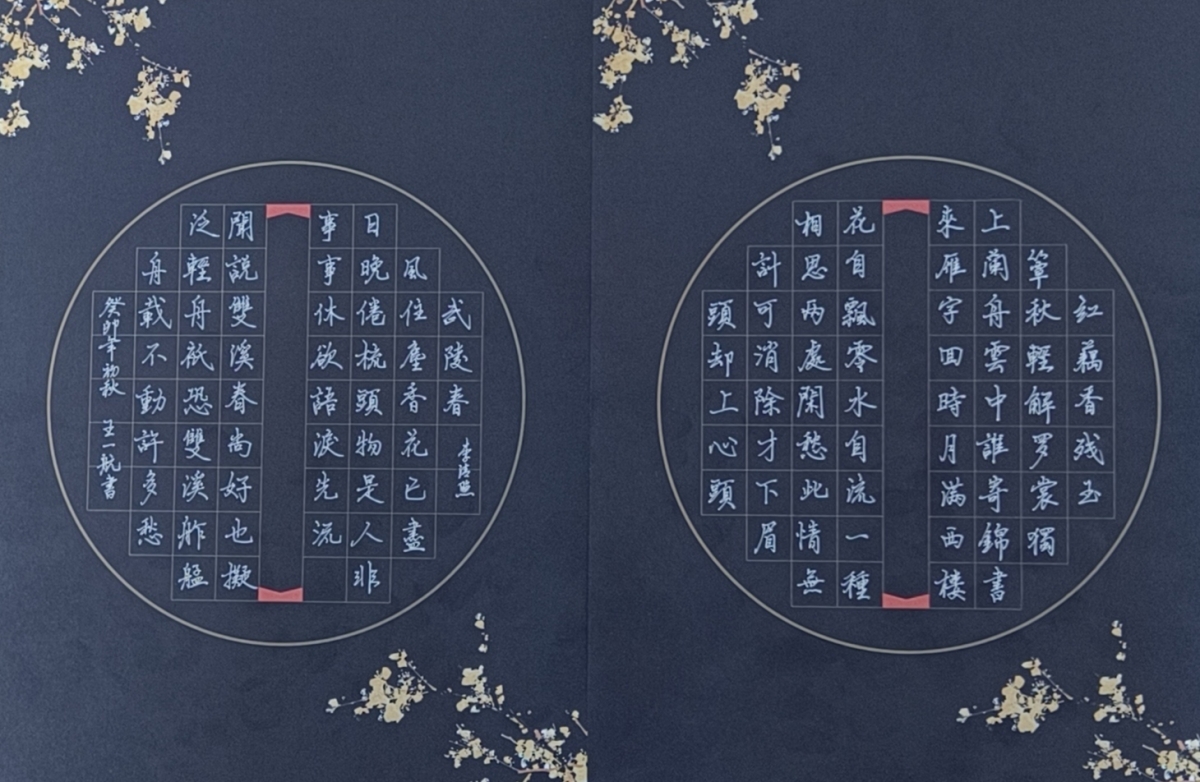 红藕香残玉
簟秋輕解罗裳獨
上蘭舟雲中誰寄錦書
來雁字回時月滿西楼
花自飄零水自流一種
相思兩處閑愁此情無
計可消除才下眉
頭却上心頭
武陵春 李清照
風住塵香花已盡
日晚倦梳頭物是人非
事事休欲語淚先流
聞說雙溪春尚好也擬
泛輕舟祇恐雙溪舴艋
舟載不動許多愁
癸卯年初秋 王一航書